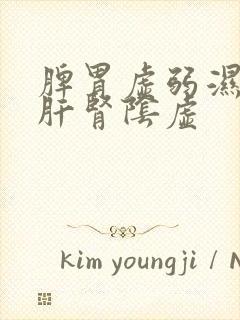 脾胃虛弱濕
肝腎陰虛
kim youngji / N